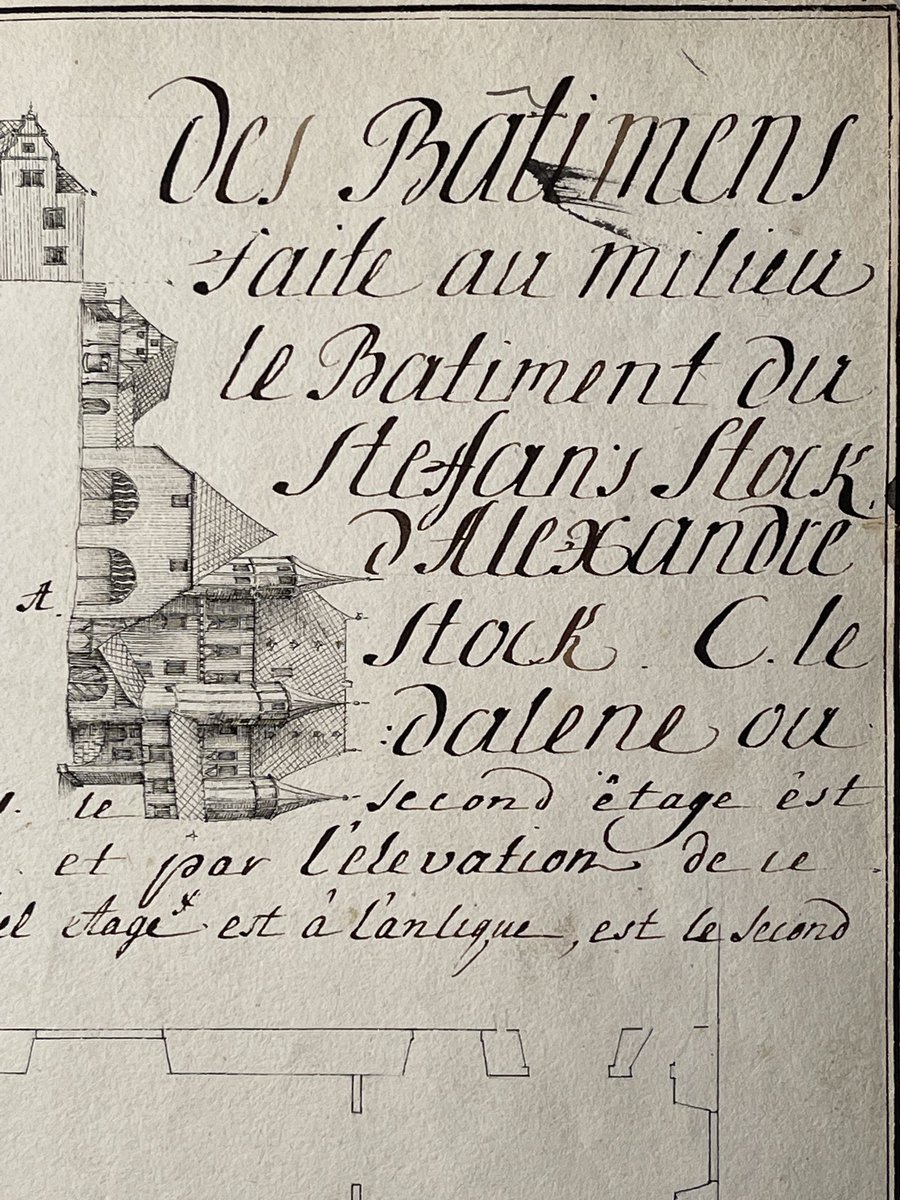 des Bâtimens
faite au milieu
le Batiment du
Steffans Stock
d'Alexandre
A.
Stock. C. le
dalene ou
le second étage est
et par l'élevation de ce
el etage est à l'antique, est le second